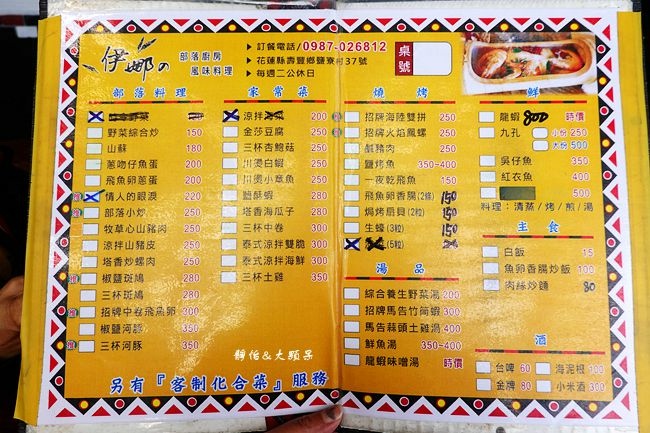 伊娜の
部落廚房
風味料理
訂餐電話/0987-026812
花蓮縣壽豐鄉鹽寮村37號
每週二公休日
桌號
部落料理
野菜綜合炒 150
山蘇 180
蔥吻仔魚蛋 200
飛魚卵蔥蛋 200
情人的眼淚 220
部落小炒 250
牧草心山豬肉 250
涼拌山豬皮 250
塔香炒螺肉 250
椒鹽斑鳩 280
三杯斑鳩 280
招牌中卷飛魚卵 300
椒鹽河豚 350
三杯河豚 350
家常菜
涼拌 200
金莎豆腐 250
三杯杏鮑菇 250
川燙白蝦 250
川燙小章魚 250
鹽酥蝦 250
塔香海瓜子 280
三杯中卷 300
泰式涼拌雙脆 300
泰式涼拌海鮮 300
三杯土雞 350
靜怡&大頭呂
另有『客制化合菜』服務
燒烤
招牌海陸雙拼 250
招牌火焰鳳螺 250
鹹豬肉 250
鹽烤魚 350-400
一夜乾飛魚 150
飛魚卵香腸(2條) 150
焗烤扇貝(2粒) 150
生蠔(3粒) 150
(5粒)
湯品
綜合養生野菜湯 200
招牌馬告竹筒蝦 300
馬告蒜頭土雞湯 400
鮮魚湯 350-400
龍蝦味噌湯 時價
鮮
龍蝦 800 時價
九孔 小份 250
大份 500
吳仔魚 350
紅衣魚 400
500
料理:清蒸/烤/煎/湯
主食
白飯 15
魚卵香腸炒飯 100
肉絲炒麵 80
酒
台啤 60 海泥根 100
金牌 80 小米酒 300